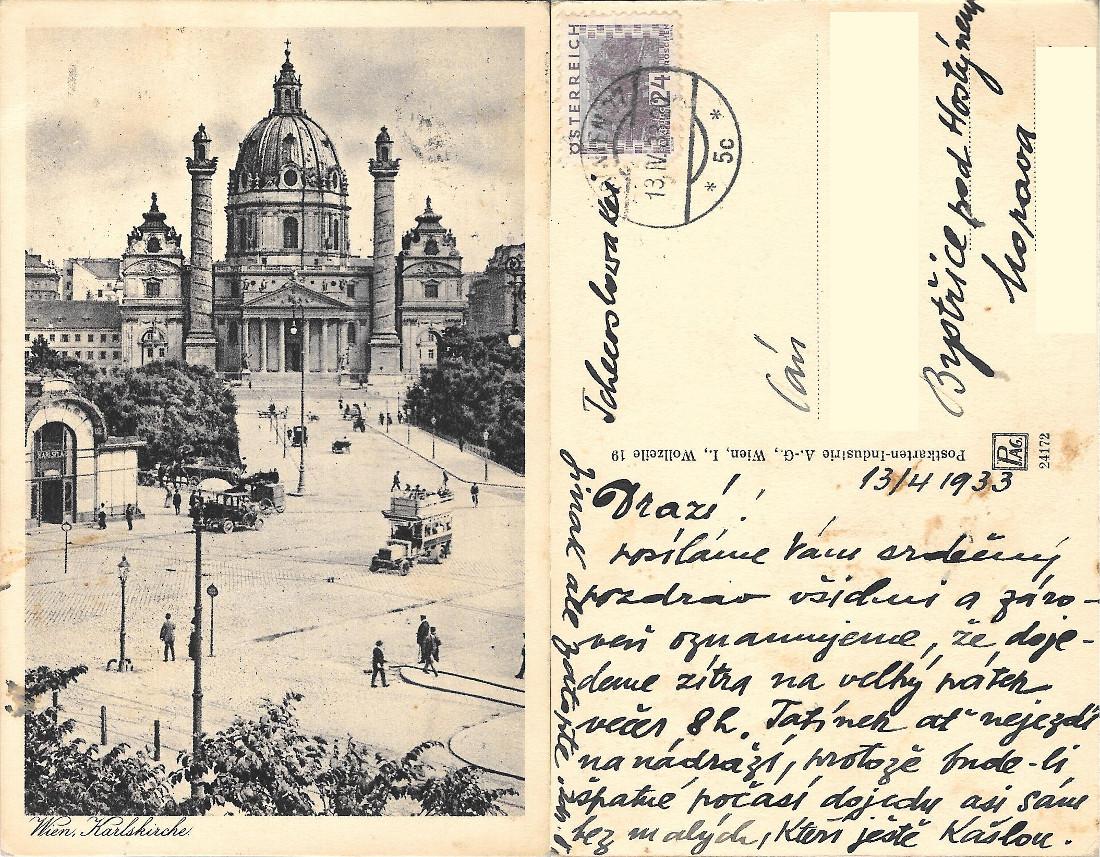 Wien, Karlskirche.
KARLSPLATZ
ÖSTERREICH
24
GROSCHEN
WIEN
13.IV.33
* 5c *
Tschechoslowakei
Bystřice pod Hostýnem
Morava
Postkarten-Industrie A.-G., Wien, I., Wollzeile 19
PAG.
24172
13/4 1933
Drazí!
posíláme Vám srdečný
pozdrav všichni a záro-
veň oznamujeme, že doje-
deme zítra na velký pátek
večer 8h. Tatínek ať nejezdí
na nádraží, protože bude-li
špatné počasí dojedu asi sám
bez malých, kteří ještě kašlou.
Jinak ale